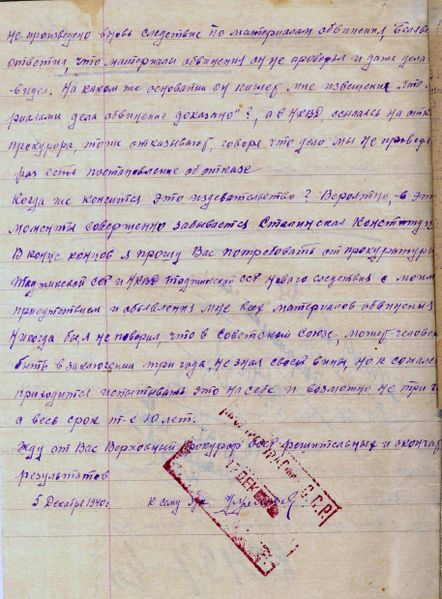 не произведено вновь следствие по материалам обвинения, Беляев
ответил, что материалы обвинения он не проверял и даже дела
не видел. На каком же основании он пишет мне извещения "что
риалами дела обвинение доказано"?, а в НКВД ссылаясь на отк
прокурора, тоже отказывают, говоря что дело мы не проверя
раз есть постановление об отказе
Когда же кончится это издевательство? Вероятно, в эти
моменты совершенно забывается Сталинская Конституция
В конце концов я прошу Вас потребовать от прокуратуры
Таджикской ССР и НКВД Таджикской ССР нового следствия с моим
присутствием и объявления мне всех материалов обвинения
Никогда бы я не поверил, что в Советском Союзе, может человек
быть в заключении три года, не зная своей вины, но к сожале
приходится испытывать это на себе и возможно не три г
а весь срок т-е 10 лет.
Жду от Вас Верховный прокурор решительных и оконча
результатов
5 Декабря 1940 г. к сему з/к
ДЕК